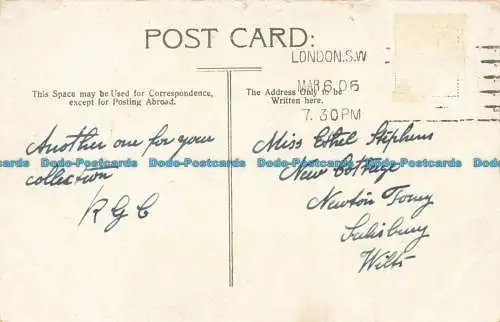 POST CARD:
LONDON.S.W
MAR 6.05
7.30PM
This Space may be Used for Correspondence,
except for Posting Abroad.
The Address Only to be
Written here.
Another one for your
collection
R G C
Miss Ethel Stephens
New Cottage
Newton Toney
Salisbury
Wilts
Dodo-Postcards Dodo-Postcards Dodo-Postcards Dodo-Postcards